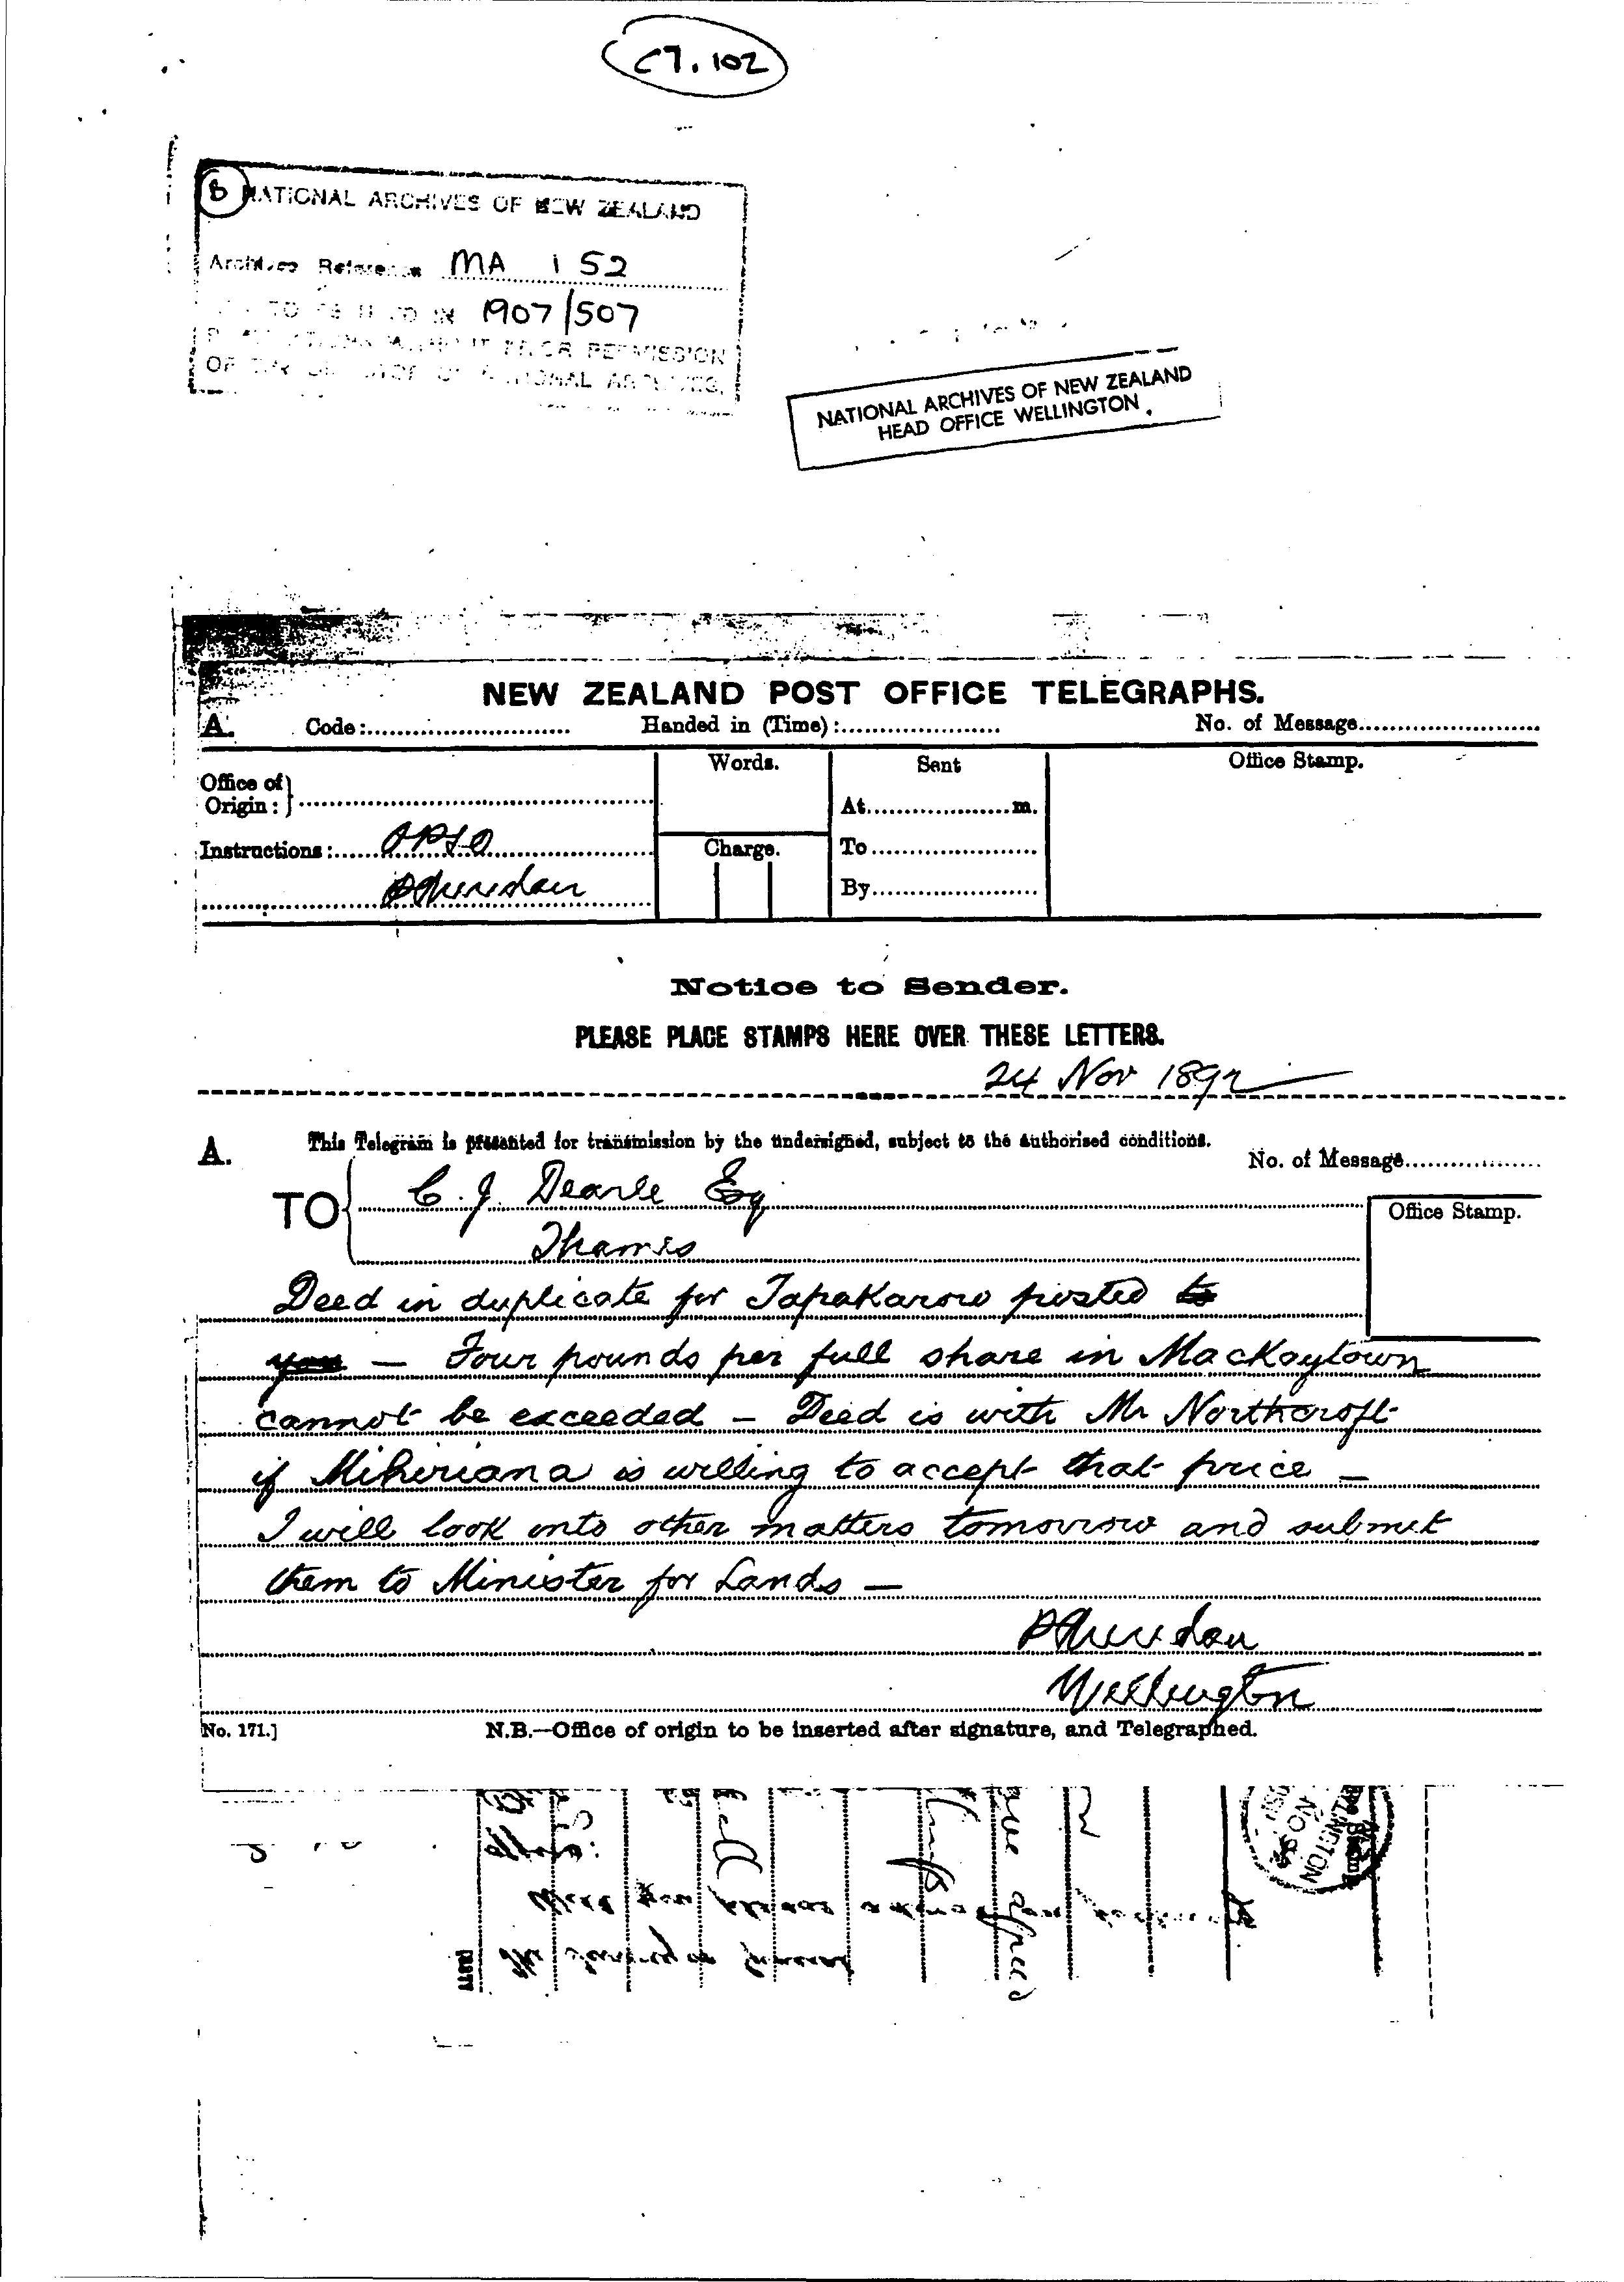 C7.102
B NATIONAL ARCHIVES OF NEW ZEALAND
Archives Reference MA 1 52
1907/507
WITHOUT PRIOR PERMISSION
NATIONAL ARCHIVES OF NEW ZEALAND
HEAD OFFICE WELLINGTON
NEW ZEALAND POST OFFICE TELEGRAPHS.
A. Code: Handed in (Time): No. of Message
Office of Origin: Words. Sent Office Stamp.
At m.
Instructions: Charge. To
PSheridan By
Notice to Sender.
PLEASE PLACE STAMPS HERE OVER THESE LETTERS.
24 Nov 1892
A. This Telegram is presented for transmission by the undersigned, subject to the authorised conditions. No. of Message
TO C. J. Dearle Esq Office Stamp.
Thames
Deed in duplicate for Tapakarow posted to
you — Four pounds per full share in MacKaytown
cannot be exceeded – Deed is with Mr Northcroft
if Mihiriana is willing to accept that price —
I will look into other matters tomorrow and submit
them to Minister for Lands —
PSheridan
Wellington
No. 171.] N.B.—Office of origin to be inserted after signature, and Telegraphed.